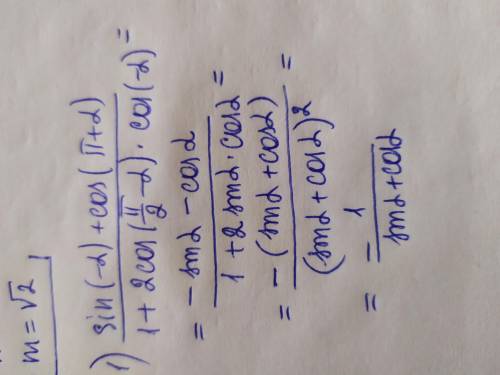 m = √2
1) (sin(-α) + cos(π+α)) / (1 + 2cos(π/2 - α) · cos(-α)) =
= (-sinα - cosα) / (1 + 2 sinα · cosα) =
= (-(sinα + cosα)) / (sinα + cosα)² =
= - 1 / (sinα + cosα)